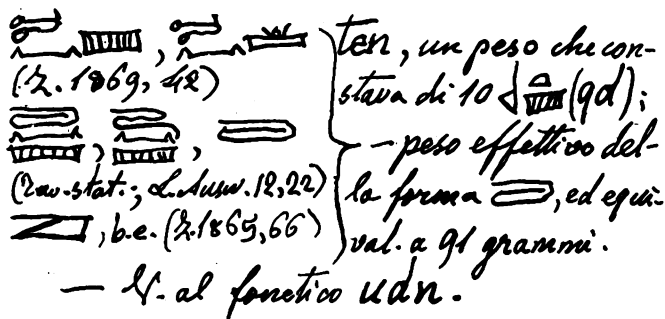 (Z. 1869, 42)
stat.; L. Ausw. 12, 22)
, b.e. (Z. 1865, 66)
ten, un peso che con-
stava di 10 (qd);
— peso effettivo del-
la forma , ed equi-
val. a 91 grammi.
— V. al fonetico udn.